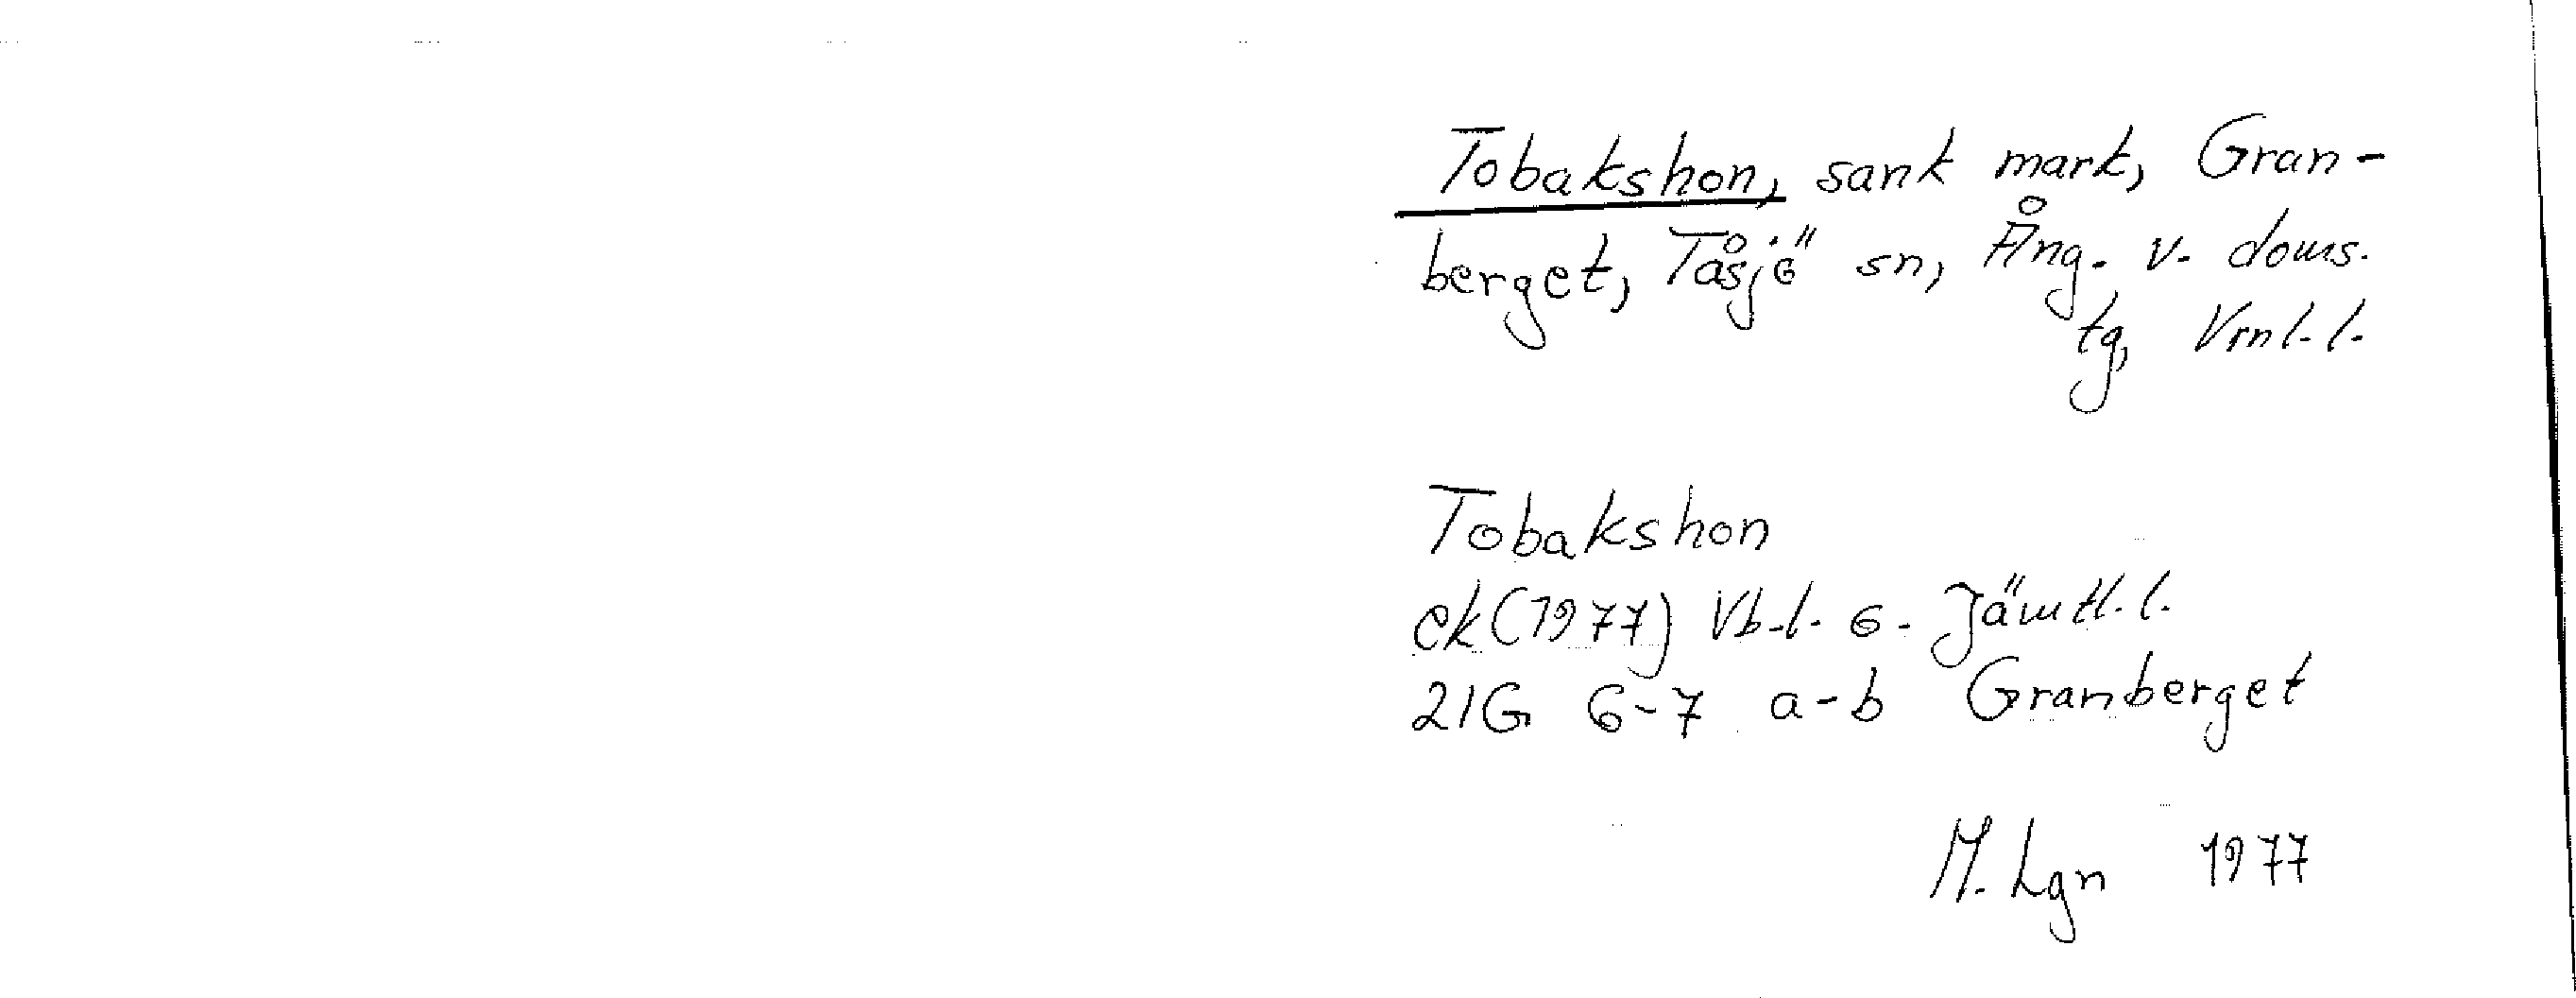 Tobakshon, sank mark, Gran-
berget, Tåsjö sn, Ång. v. doms.
tg, Vrnl.l.
Tobakshon
ek(1977) Vb.l. o. Jämtl.l.
21G 6-7 a-b Granberget
M. Lgn 1977